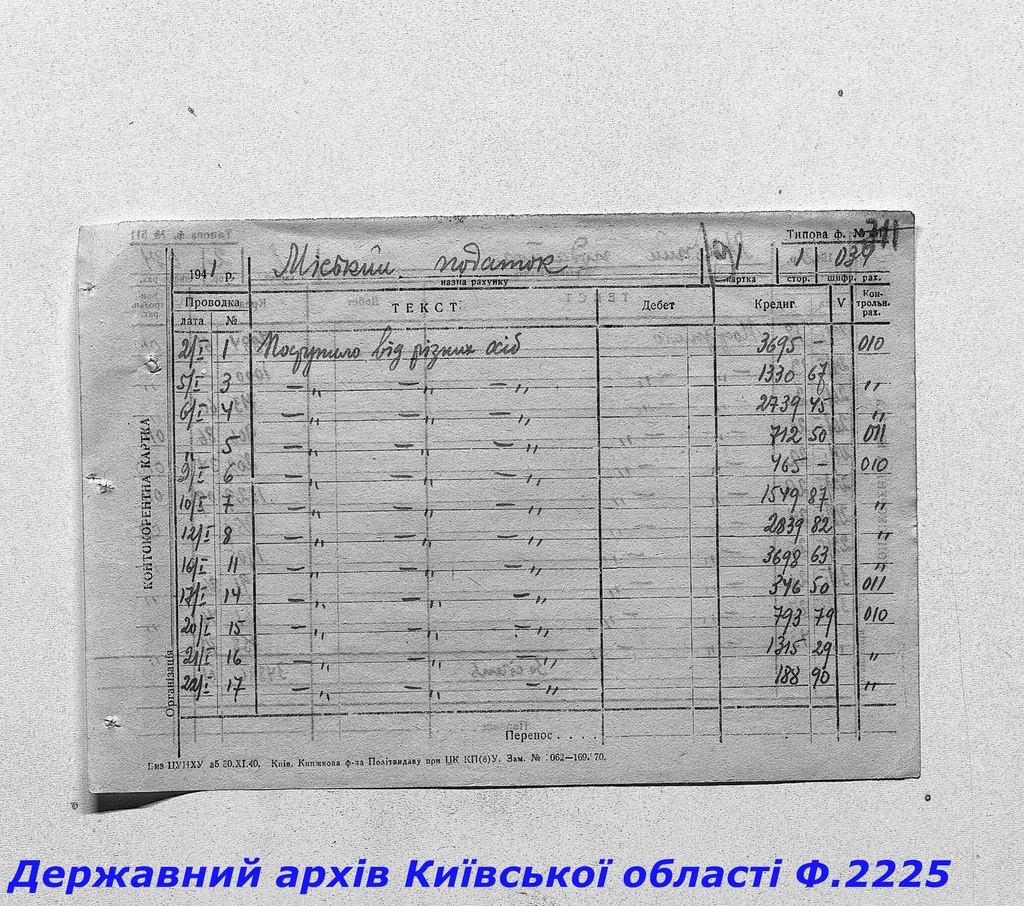 Типова ф. № 311
1941 р. Міський податок 1 1 034
назва рахунку картка стор. шифр. рах.
Проводка ТЕКСТ Дебет Кредит V Контрольн. рах.
дата №
2/I 1 Поступило від різних осіб 3695 – 010
5/I 3 –„ –„ –„ 1330 67 „
6/I 4 –„ –„ –„ 2739 45 „
„ 5 –„ –„ –„ 712 50 011
9/I 6 –„ –„ –„ 465 – 010
10/I 7 –„ –„ –„ 1549 87 „
12/I 8 –„ –„ –„ 2839 82 „
16/I 11 –„ –„ –„ 3698 63 „
17/I 14 –„ –„ –„ 346 50 011
20/I 15 –„ –„ –„ 793 79 010
21/I 16 –„ –„ –„ 1315 29 „
22/I 17 –„ –„ –„ 188 90 „
Перенос . . . .
КОНТОКОРЕНТНА КАРТКА
Організація
ЦУНХУ 30.XI.40. Київ. Книжкова ф-ка Політвидаву при ЦК КП(б)У. Зам. № 062—169. 70.
Державний архів Київської області Ф.2225